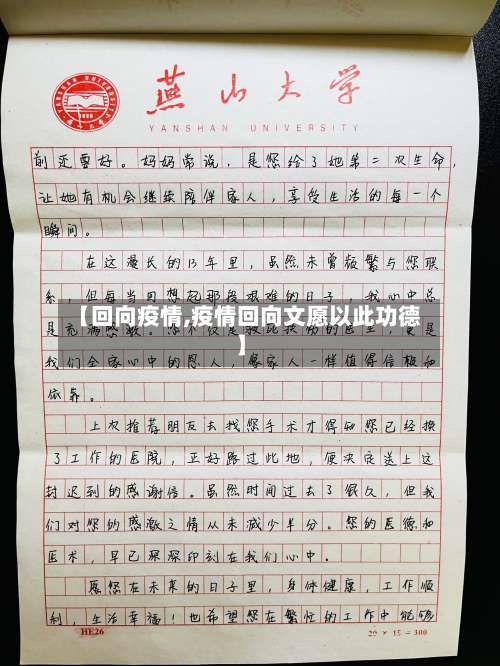 燕山大学
YANSHAN UNIVERSITY
前还要好。妈妈常说，是您给了她第二次生命，
让她有机会继续陪伴家人，享受生活的每一个
瞬间。
在这漫长的13年里，虽然未曾频繁与您联
系，但每当回想起那段艰难的日子，我心中总
是充满感激。您不仅是
【回向疫情,疫情回向文愿以此功德
】
我们全家心中的恩人，像家人一样值得信赖和
依靠。
上次推荐朋友去找您手术才得知您已经换
了工作的医院，正好路过此地，便决定送上这
封迟到的感谢信。虽然时间过去了很久，但我
们对您的感激之情从未减少半分。您的医德和
医术，早已深深印刻在我们心中。
愿您在未来的日子里，身体健康，工作顺
利，生活幸福！也希望您在繁忙的工作中能够
HE26
20 × 15 = 300